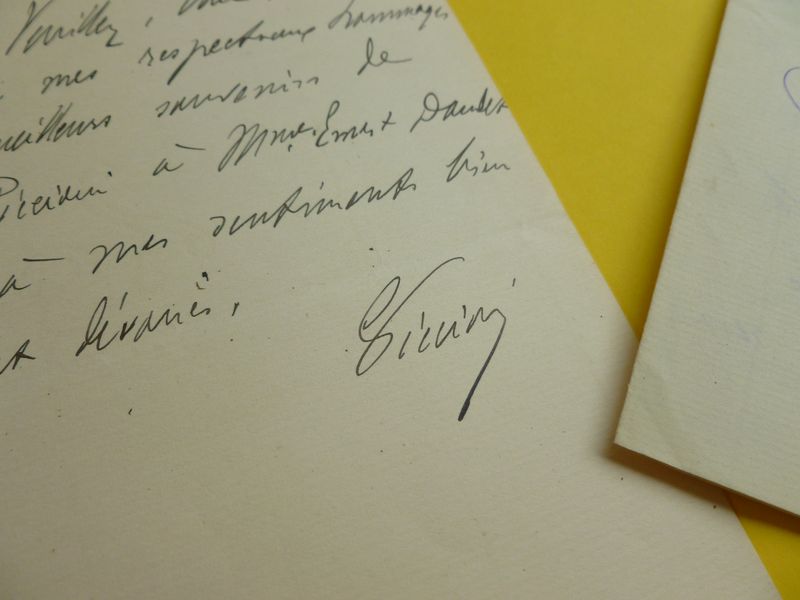 Veuillez,
mes respectueux hommages
meilleurs souvenirs de
à Mme Ernest Daudet
à mes sentiments bien
dévoués.